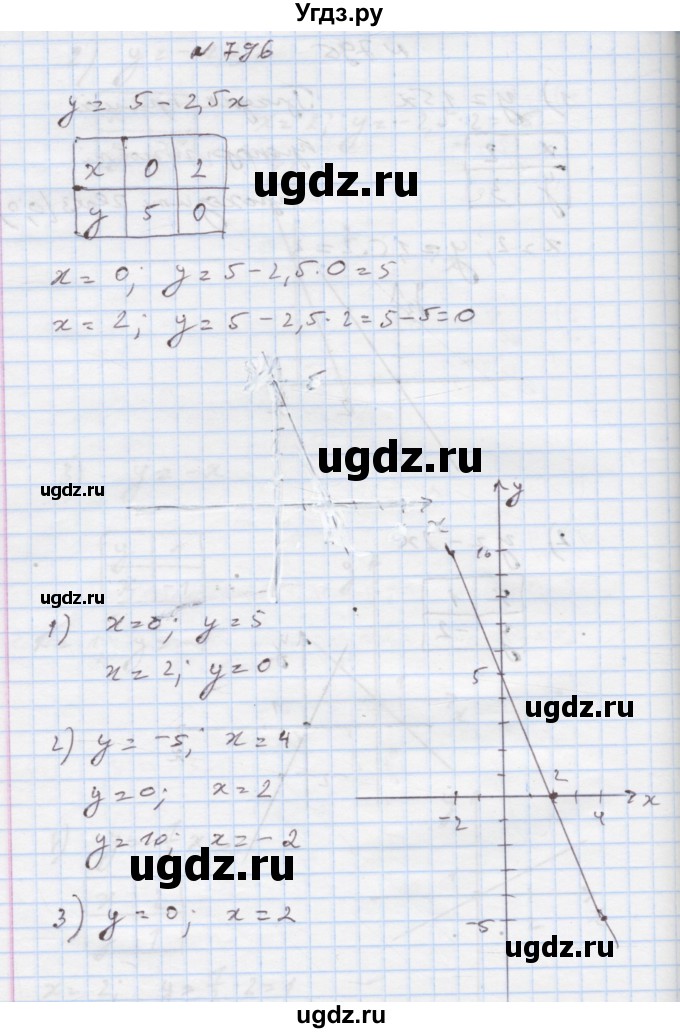 Угдз.ру
№ 796
y = 5 - 2,5x
x 0 2
y 5 0
ugdz.ru
x = 0; y = 5 - 2,5·0 = 5
x = 2; y = 5 - 2,5·2 = 5 - 5 = 0
5
ugdz.ru
ugdz.ru
y
10
ugdz.ru
1) x = 0; y = 5
x = 2; y = 0
5
ugdz.ru
2) y = -5; x = 4
y = 0; x = 2
y = 10; x = -2
2
-2 4 x
ugdz.ru
3) y = 0; x = 2
-5
ugdz.ru
ugdz.ru